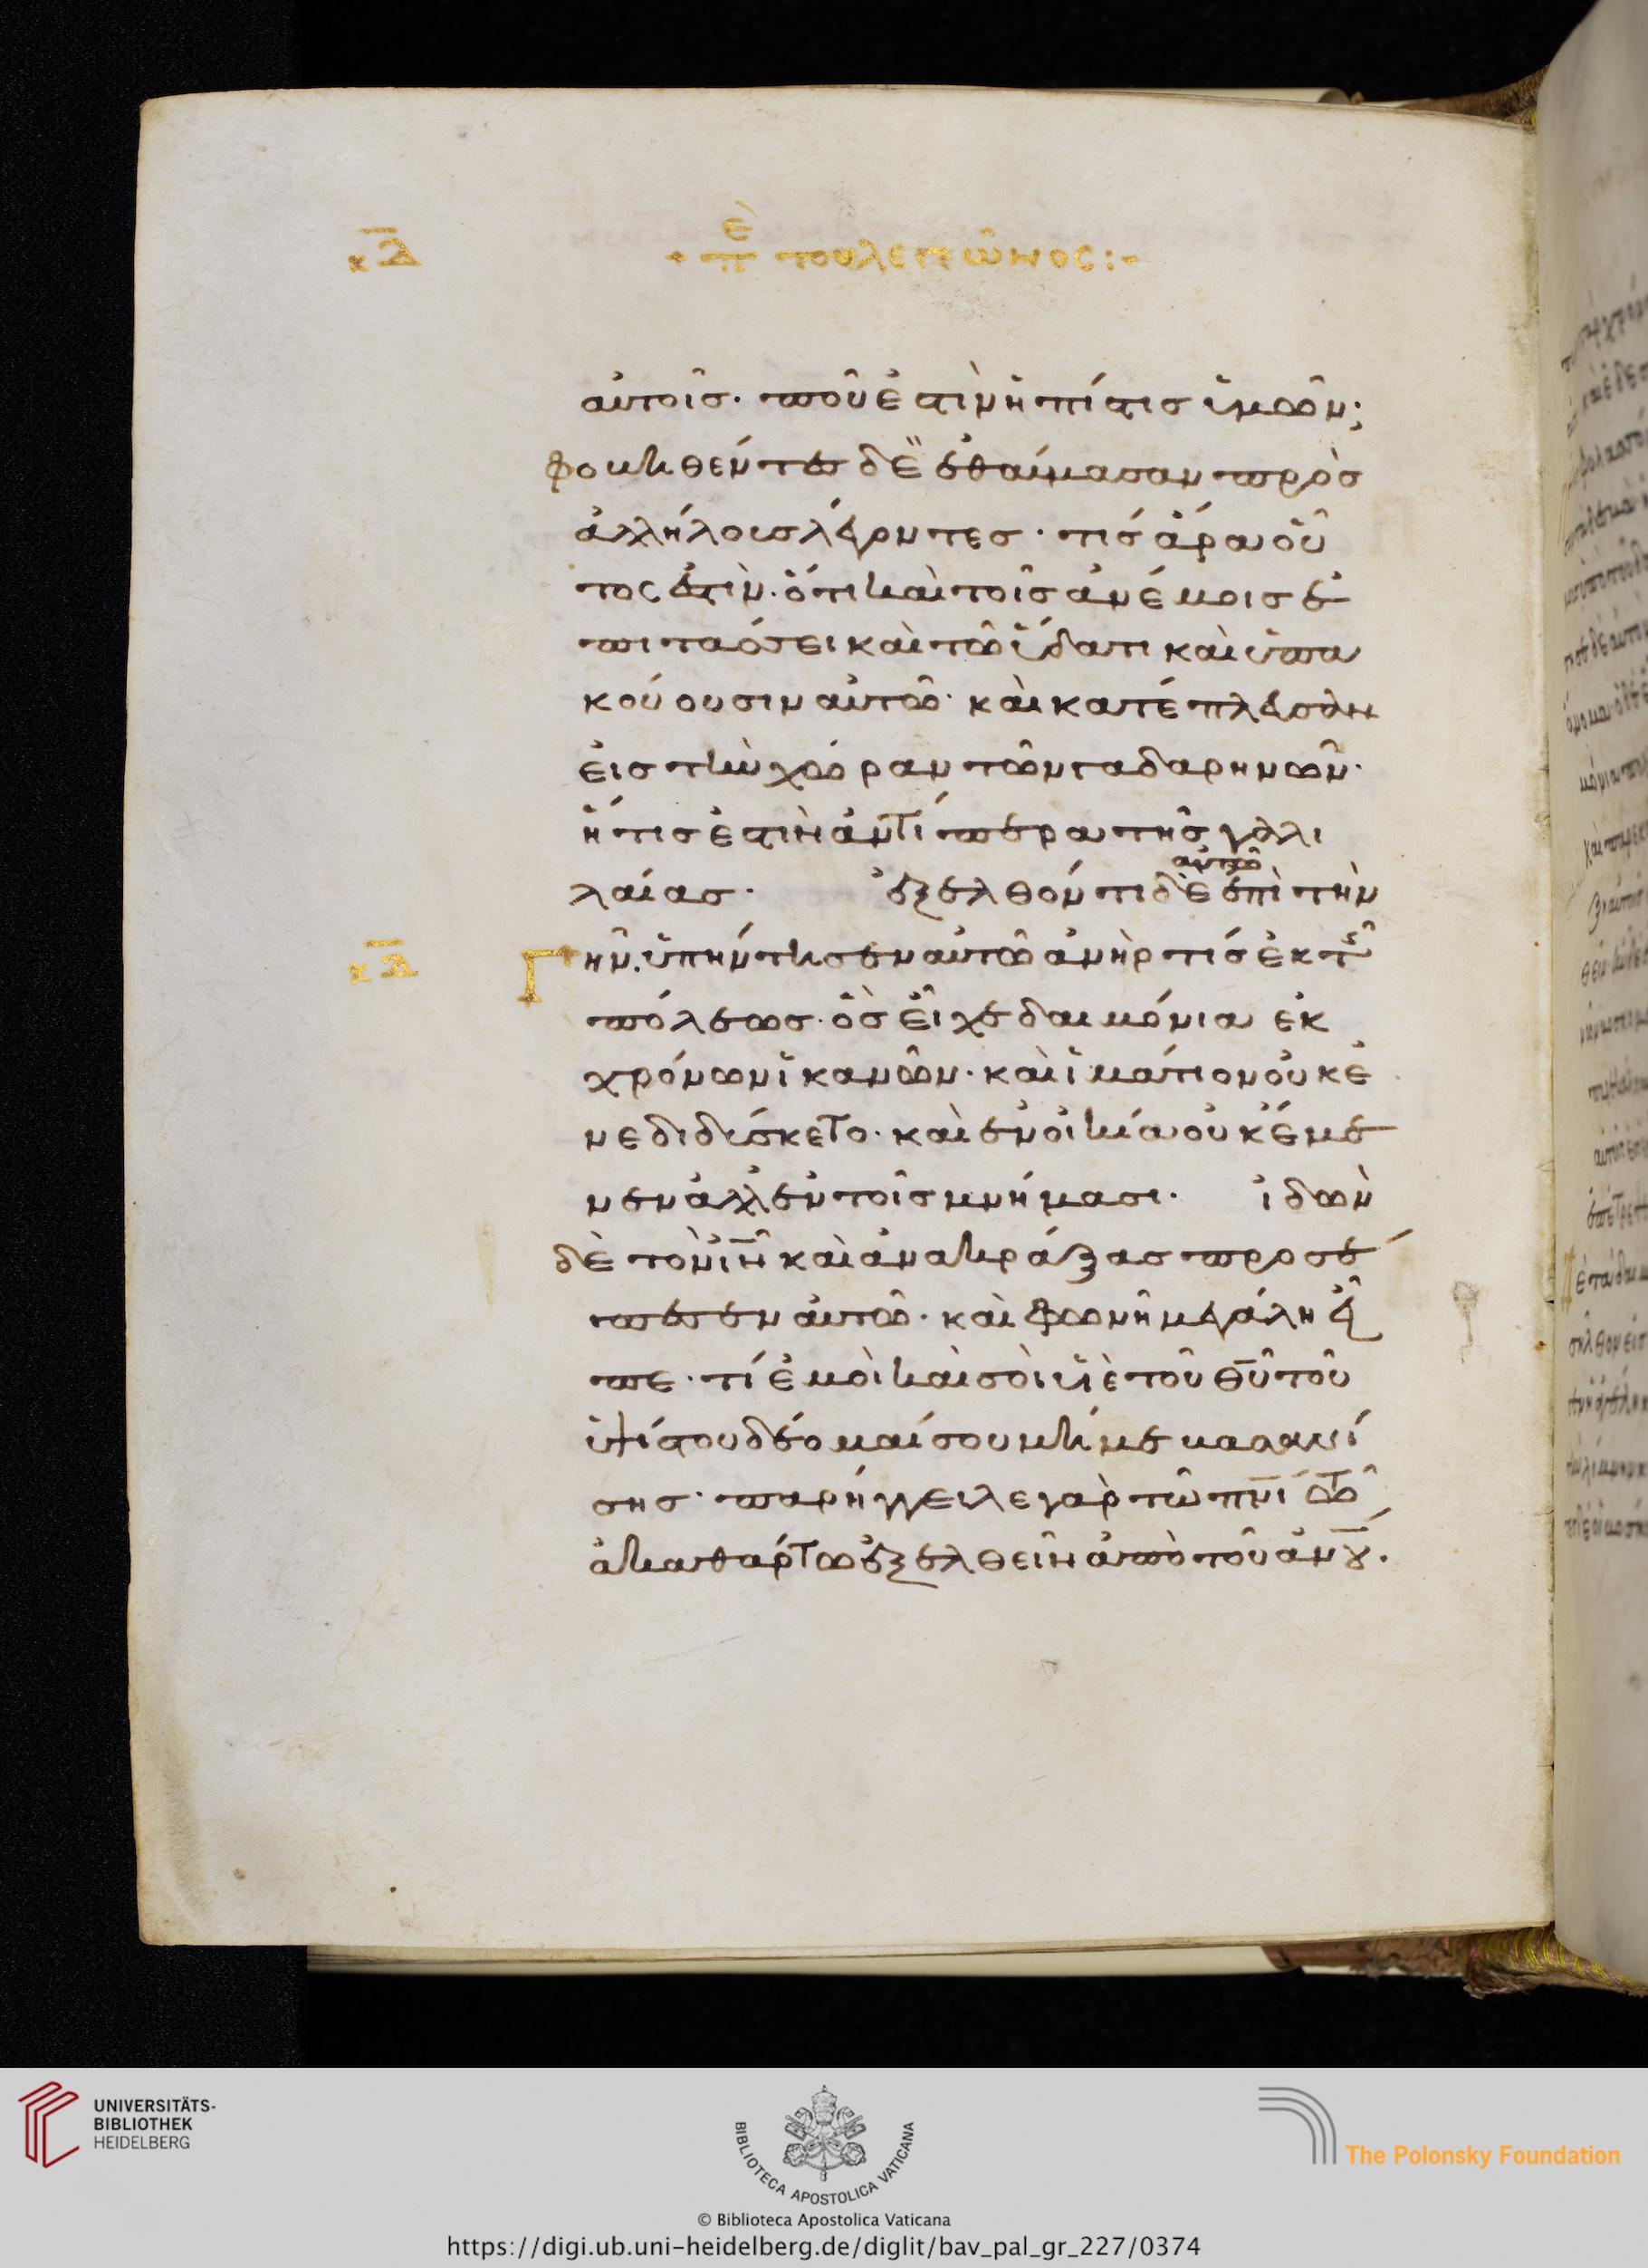 κδ
+ πε του λεγεῶνος :-
αὐτοῖσ· ποῦ ἐστὶν ἡ πίστισ ὑμῶν;
φοβηθέντες δὲ ἐθαύμασαν πρὸσ
ἀλλήλουσ λέγοντεσ· τίσ ἄρα οὗ
τος ἐστὶν· ὅτι καὶ τοῖσ ἀνέμοισ ἐ
πιτάσσει καὶ τῶ ὕδατι καὶ ὑπα
κούουσιν αὐτῶ· καὶ κατέπλευσαν
εἰσ τὴν χώραν τῶν γαδαρηνῶν·
ἥτισ ἐστὶν ἀντίπερα τῆσ γαλι
λαίασ· ἐξελθόντι δὲ αὐτῶ ἐπὶ τὴν
κδ
Γῆν, ὑπήντησεν αὐτῶ ἀνὴρ τίσ ἐκ τῆσ
πόλεωσ· ὃσ εἶχε δαιμόνια ἐκ
χρόνων ἱκανῶν· καὶ ἱμάτιον οὐκ ἐ
νεδιδύσκετο· καὶ ἐν οἰκία οὐκ ἔμε
νεν ἀλλ' ἐν τοῖσ μνήμασι· ἰδὼν
δὲ τὸν ἰν καὶ ἀνακράξασ προσέ
πεσεν αὐτῶ· καὶ φωνῆ μεγάλη εἶ
πε· τί ἐμοὶ καὶ σοὶ ἰυ υἱὲ τοῦ θυ τοῦ
ὑψίστου δέομαί σου μή με βασανί
σησ· παρήγγειλε γὰρ τῶ πνι τῶ
ἀκαθάρτω ἐξελθεῖν ἀπὸ τοῦ ἀνου.
UNIVERSITÄTS-
BIBLIOTHEK
HEIDELBERG
BIBLIOTECA APOSTOLICA VATICANA
The Polonsky Foundation
© Biblioteca Apostolica Vaticana
https://digi.ub.uni-heidelberg.de/diglit/bav_pal_gr_227/0374